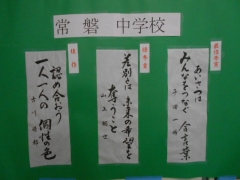 常磐 中学校
最優秀賞
あいさつは
みんなをつなぐ 合言葉
優秀賞
差別は 未来の希望を
奪うこと
佳作
認め合おう
一人一人の 個性の色